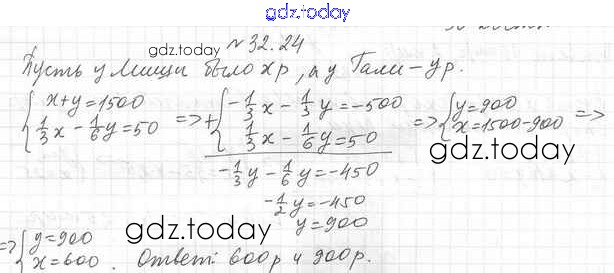 gdz.today
gdz.today
№ 32.24
Пусть у Миши было x р, а у Гали – y р.
{x+y=1500 => +{-1/3x - 1/3y = -500 => {y=900 =>
{1/3x - 1/6y = 50 {1/3x - 1/6y = 50 {x=1500-900
gdz.today
-1/3y - 1/6y = -450
-1/2y = -450
y = 900
gdz.today
gdz.today
=> {y=900
{x=600. Ответ: 600р и 900р.